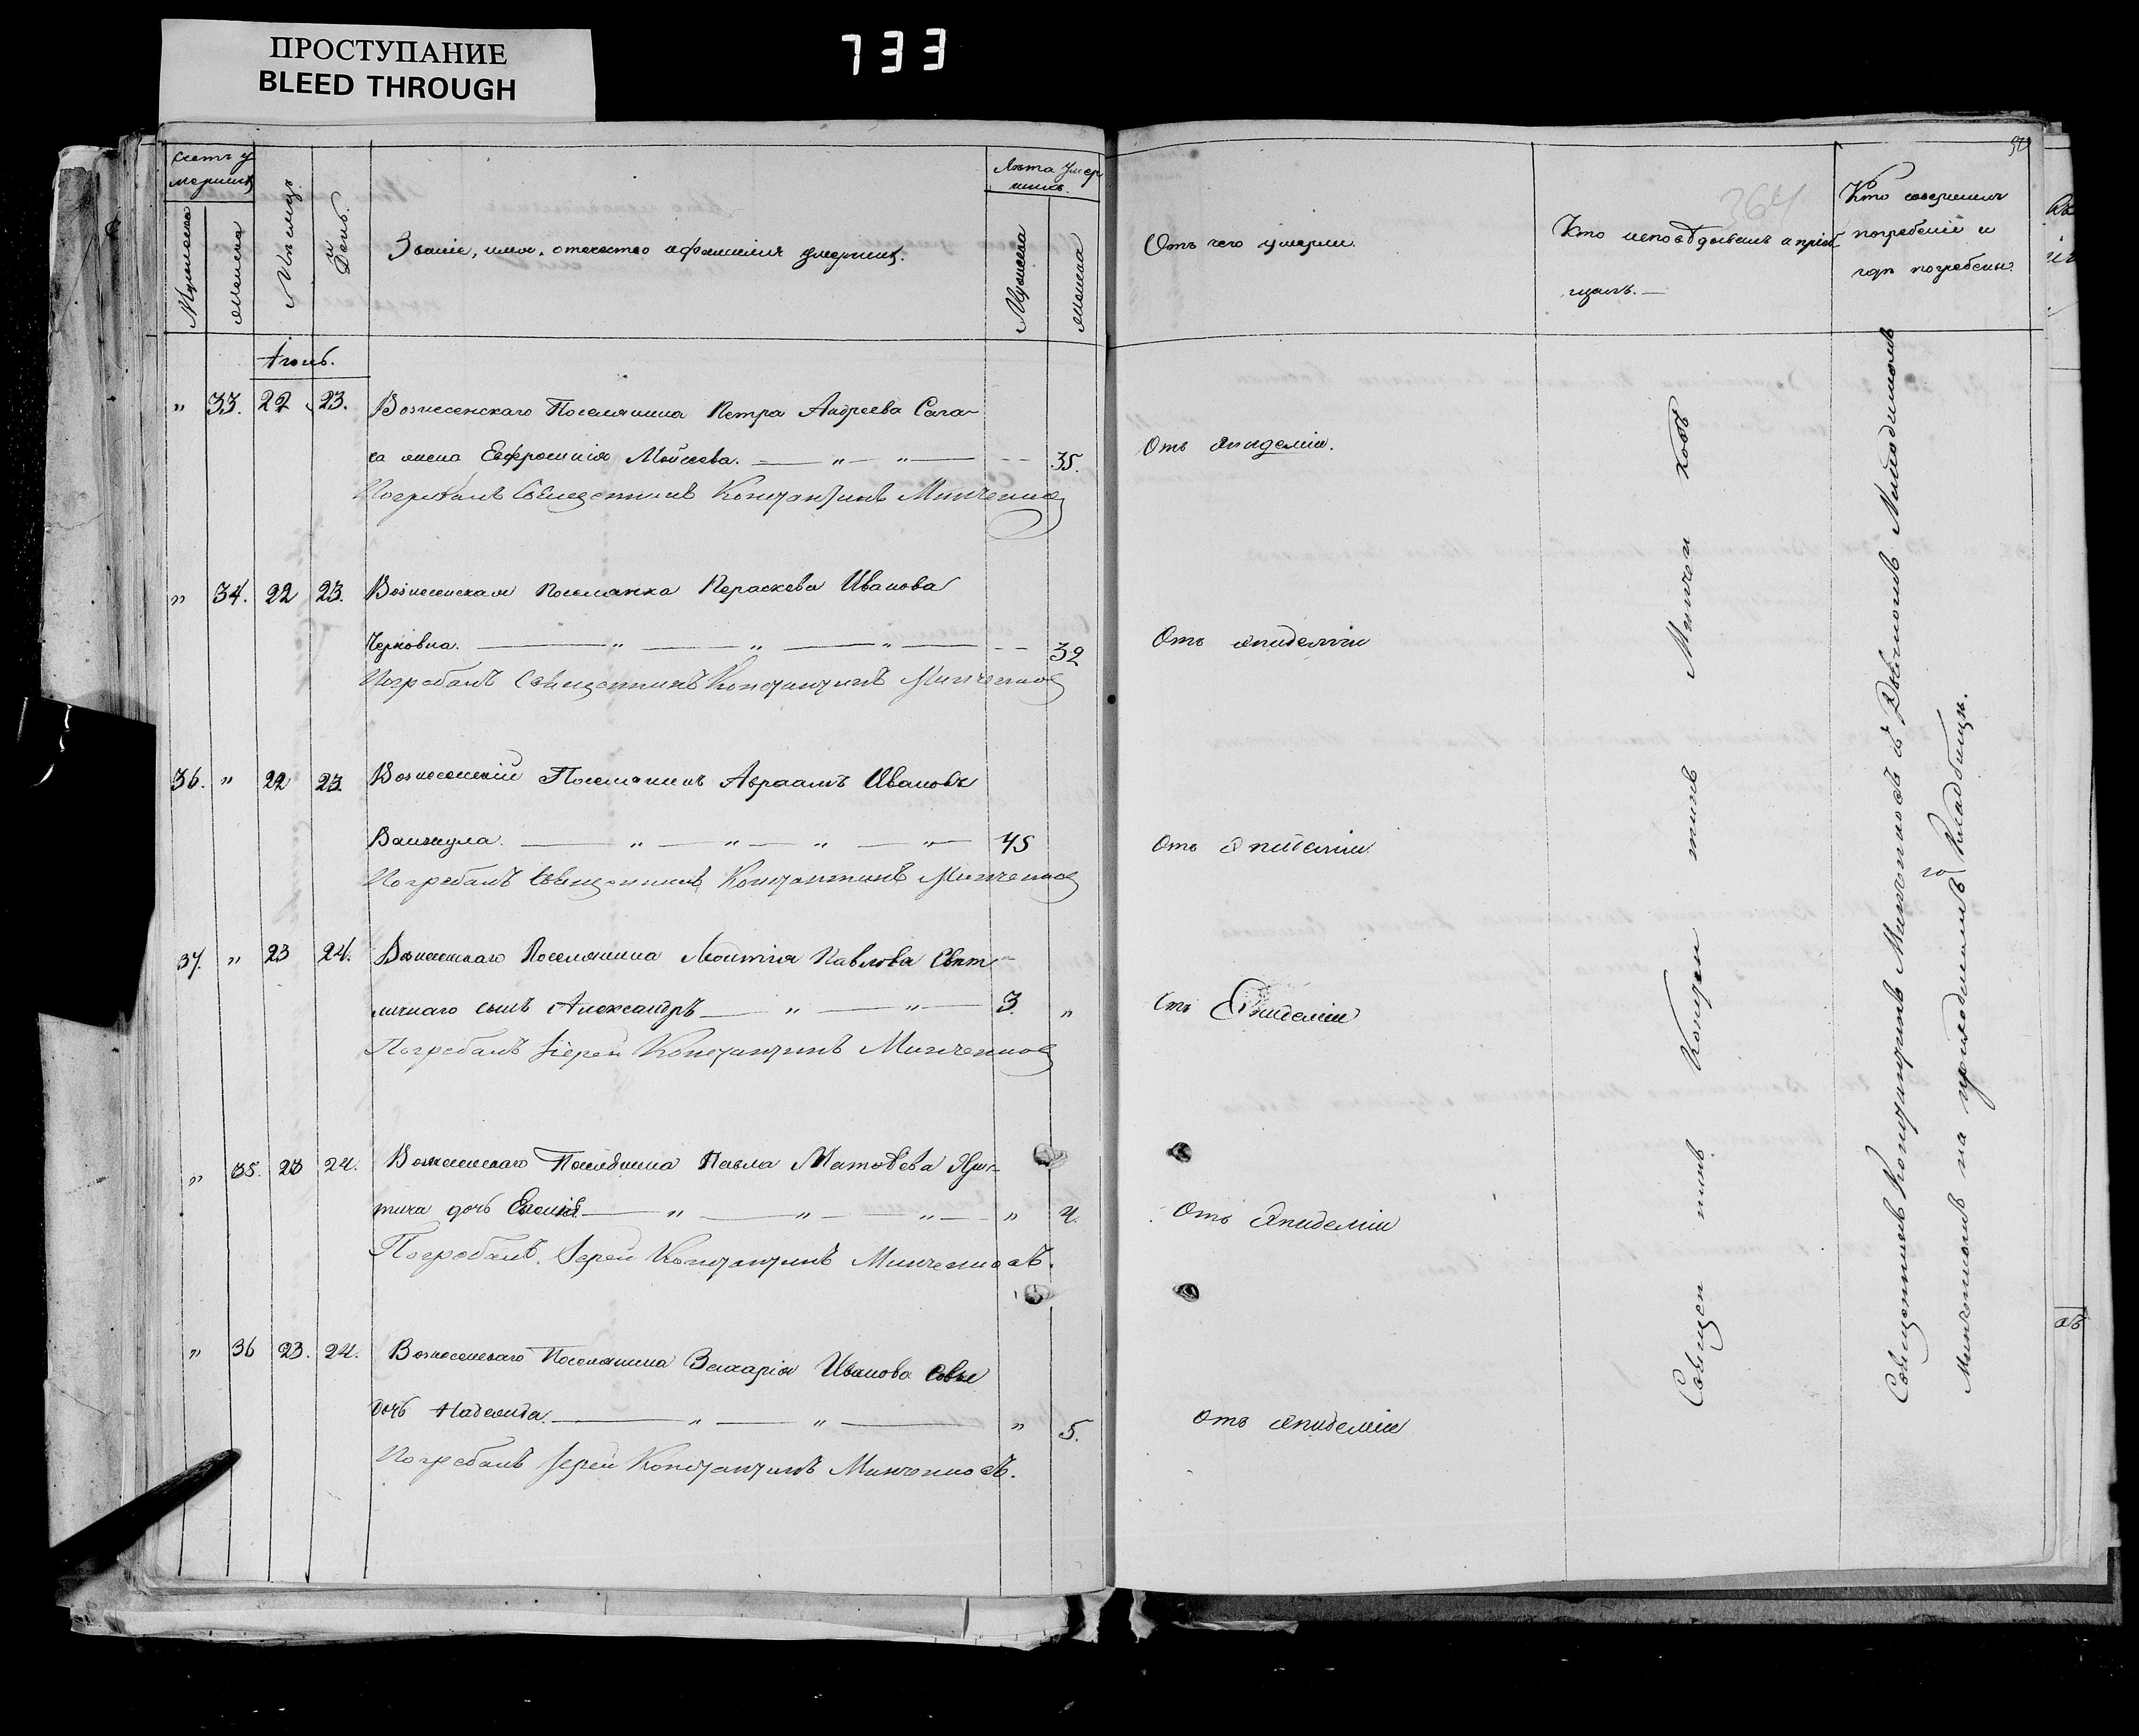 ПРОСТУПАНИЕ
BLEED THROUGH
733
Счетъ у
мершихъ
Мужеска
Женска
Мѣсяцъ
и
День.
Званіе, имя, отечество и фамилія умершихъ.
Лѣта умер
шихъ.
Мужеска
Женска
Отъ чего умерли.
364
Кто исповѣдовалъ и пріоб
щалъ. —
Кто совершилъ
погребеніе и
гдѣ погребены.
Іюль.
" 33. 22 23. Вознесенскаго Поселянина Петра Андреева Сага-
ка жена Евфросинія Мойсеева. — " — " — 35. Отъ эпидеміи.
Погребалъ Священникъ Константинъ Минченков
" 34. 22 23. Вознесенская поселянка Параскева Иванова
— " — " — " — 32 Отъ эпидеміи
Погребалъ Священникъ Константинъ Минченков
36. " 22 23. Вознесенскій Поселянинъ Авраамъ Ивановъ
— " — " — " — " — 45 Отъ эпидеміи.
Погребалъ Священникъ Константинъ Минченков
37. " 23 24. Вознесенскаго Поселянина Павлова Свѣт-
личнаго сынъ Александръ — " — " — 3. " Отъ Эпидеміи
Погребалъ Іерей Константинъ Минченков
" 35. 23 24. Вознесенскаго Поселянина Павла Матвѣева
дочь — " — " — " — " 4. Отъ Эпидеміи
Погребалъ. Іерей Константинъ Минченковъ.
" 36 23. 24. Вознесенскаго Поселянина Захарія Иванова
дочь — " — " — " 5. Отъ эпидеміи
Погребалъ Іерей Константинъ Минченковъ.
Священникъ Константинъ Минченковъ
Священникъ Константинъ Минченковъ съ Дьякономъ
Минченкомъ на приходскомъ кладбищѣ.